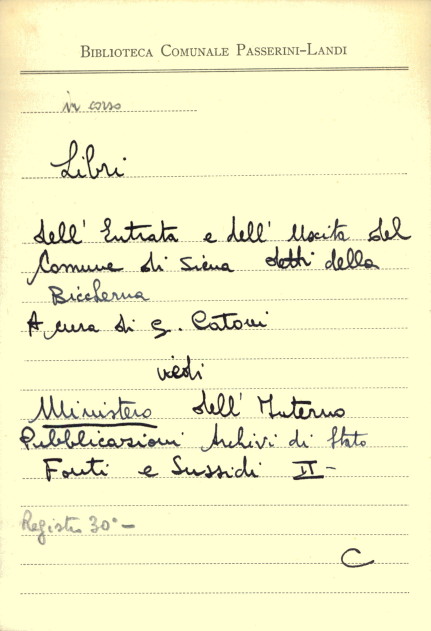 BIBLIOTECA COMUNALE PASSERINI-LANDI
in corso
Libri
dell' Entrata e dell' Uscita del
Comune di Siena detti della
Biccherna
A cura di G. Catoni
vedi
Ministero dell' Interno
Pubblicazioni Archivi di Stato
Fonti e Sussidi II -
Registro 30° -
C